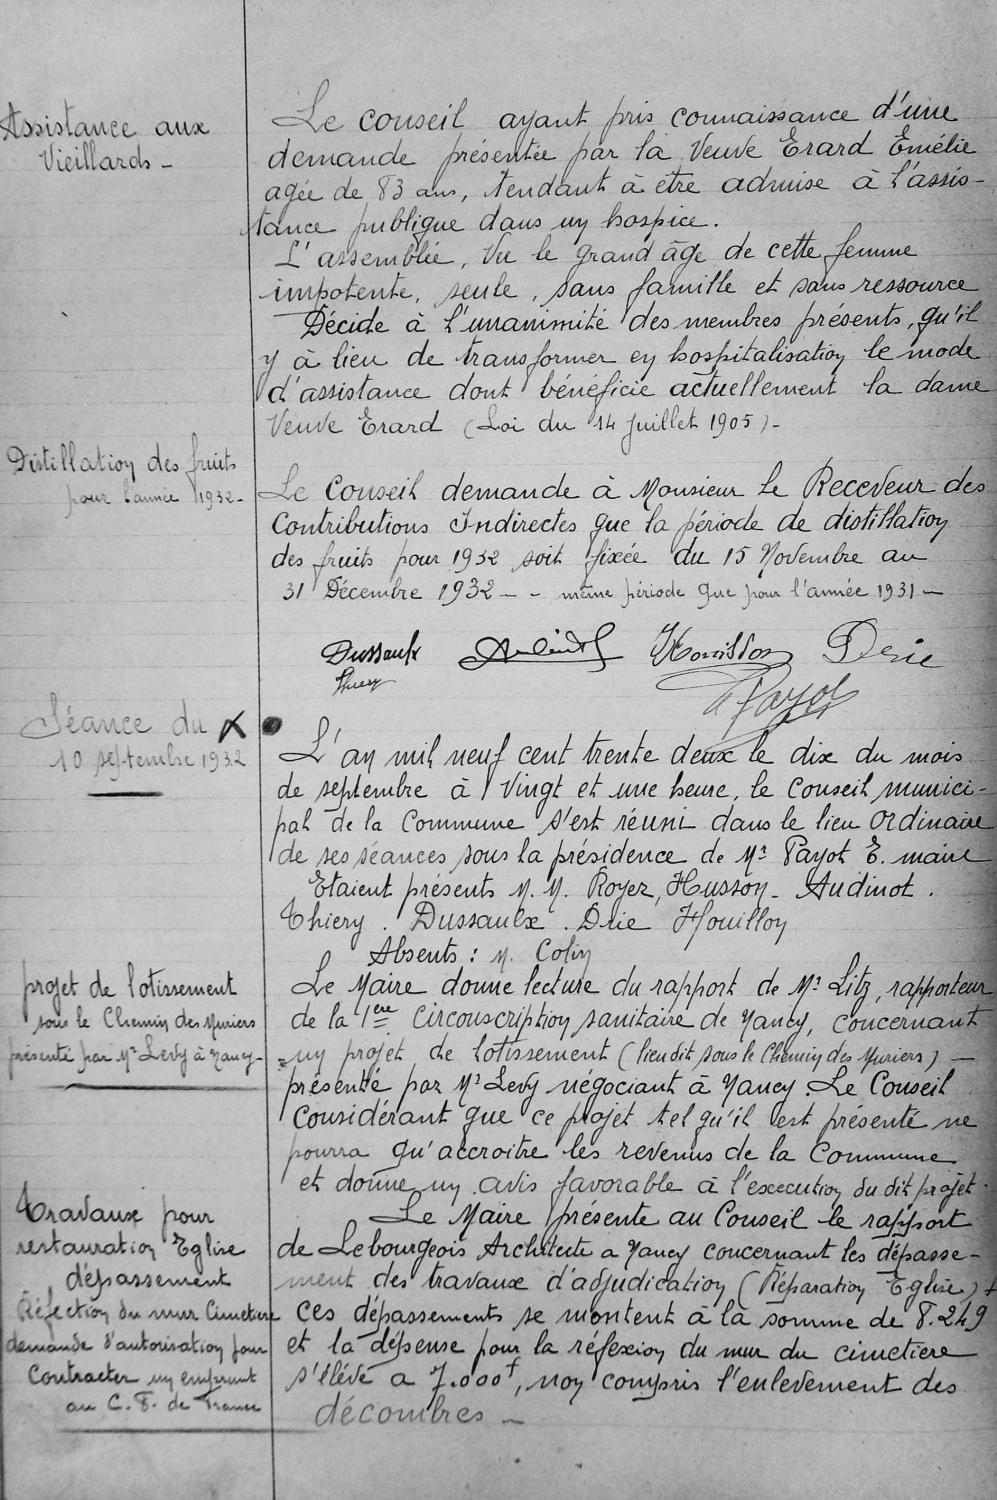 Assistance aux
Vieillards -
Le conseil ayant pris connaissance d'une
demande présentée par la Veuve Erard Emélie
agée de 83 ans, tendant à etre admise à l'assis-
tance publique dans un hospice.
L'assemblée, Vu le grand âge de cette femme
impotente, seule, sans famille et sans ressource
Décide à l'unanimité des membres présents, qu'il
y à lieu de transformer en hospitalisation le mode
d'assistance dont bénéficie actuellement la dame
Veuve Erard (Loi du 14 juillet 1905)-
Distillation des fruits
pour l'année 1932-
Le Conseil demande à Monsieur le Receveur des
Contributions Indirectes que la période de distillation
des fruits pour 1932 soit fixée du 15 Novembre au
31 Décembre 1932 - - même période que pour l'année 1931 -
Dussaulx Audinot Houillon Drie
Thiery Payot
Séance du X
10 septembre 1932
L'an mil neuf cent trente deux le dix du mois
de septembre à Vingt et une heure, le Conseil munici-
pal de la Commune s'est réuni dans le lieu Ordinaire
de ses séances sous la présidence de Mr Payot E. maire
Etaient présents M. M. Royer, Husson - Audinot.
Thiery. Dussaulx. Drie Houillon
Absents : M. Colin
projet de lotissement
sous le Chemin des Muriers
présenté par Mr Levy à Nancy-
Le Maire donne lecture du rapport de Mr Litz, rapporteur
de la 1ère Circonscription sanitaire de Nancy, concernant
un projet de lotissement (lieudit sous le Chemin des Muriers) -
présenté par Mr Levy négociant à Nancy. Le Conseil
Considérant que ce projet tel qu'il est présenté ne
pourra qu'accroitre les revenus de la Commune
et donne un avis favorable à l'execution du dit projet.
Travaux pour
restauration Eglise
dépassement
Réfection du mur Cimetiere
demande d'autorisation pour
Contracter un emprunt
au C. F. de France
Le Maire présente au Conseil le rapport
de Lebourgeois Architecte a Nancy concernant les dépasse-
ment des travaux d'adjudication (Réparation Eglise) +
ces dépassements se montent à la somme de 8.249
et la dépense pour la réfexion du mur du cimetiere
s'élève a 7.000f, non compris l'enlevement des
décombres -